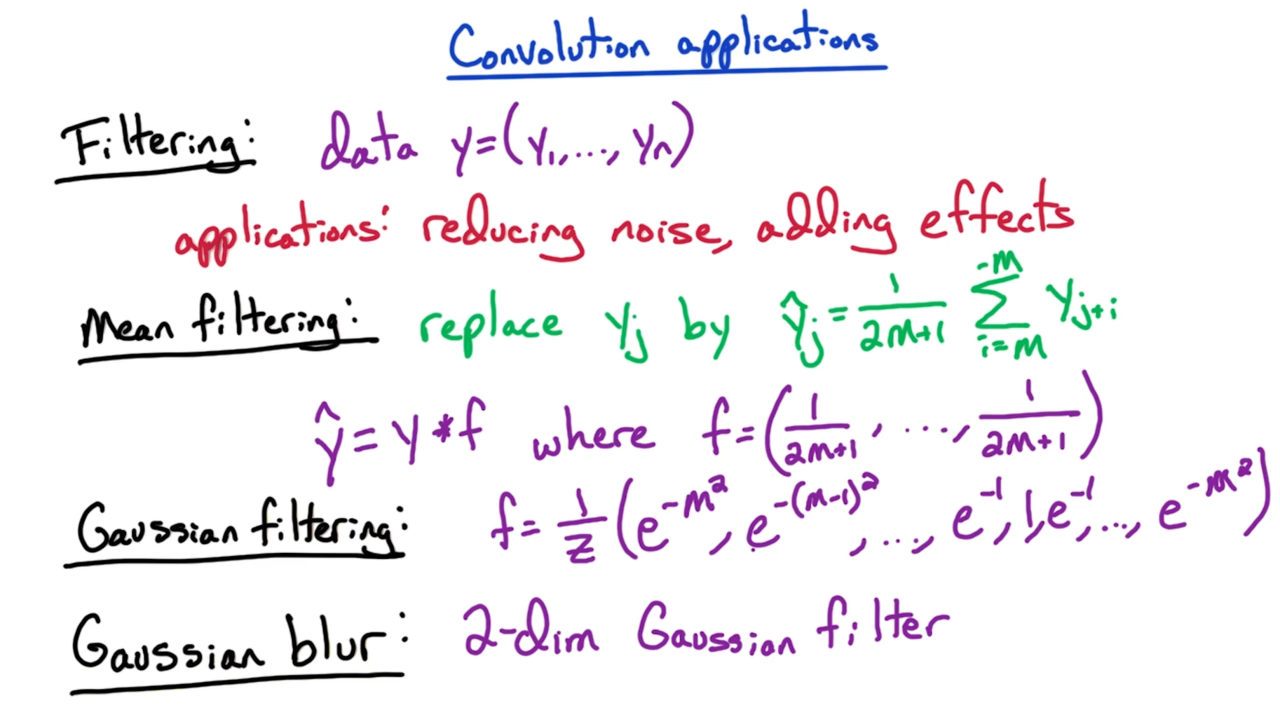 Convolution applications
Filtering: data y=(y₁,..., yₙ)
applications: reducing noise, adding effects
Mean filtering: replace yⱼ by ŷⱼ = 1/(2m+1) ∑_{i=m}^{-m} yⱼ₊ᵢ
ŷ = y * f where f=(1/(2m+1), ..., 1/(2m+1))
Gaussian filtering: f= 1/z (e^{-m²}, e^{-(m-1)²}, ..., e^{-1}, 1, e^{-1}, ..., e^{-m²})
Gaussian blur: 2-dim Gaussian filter